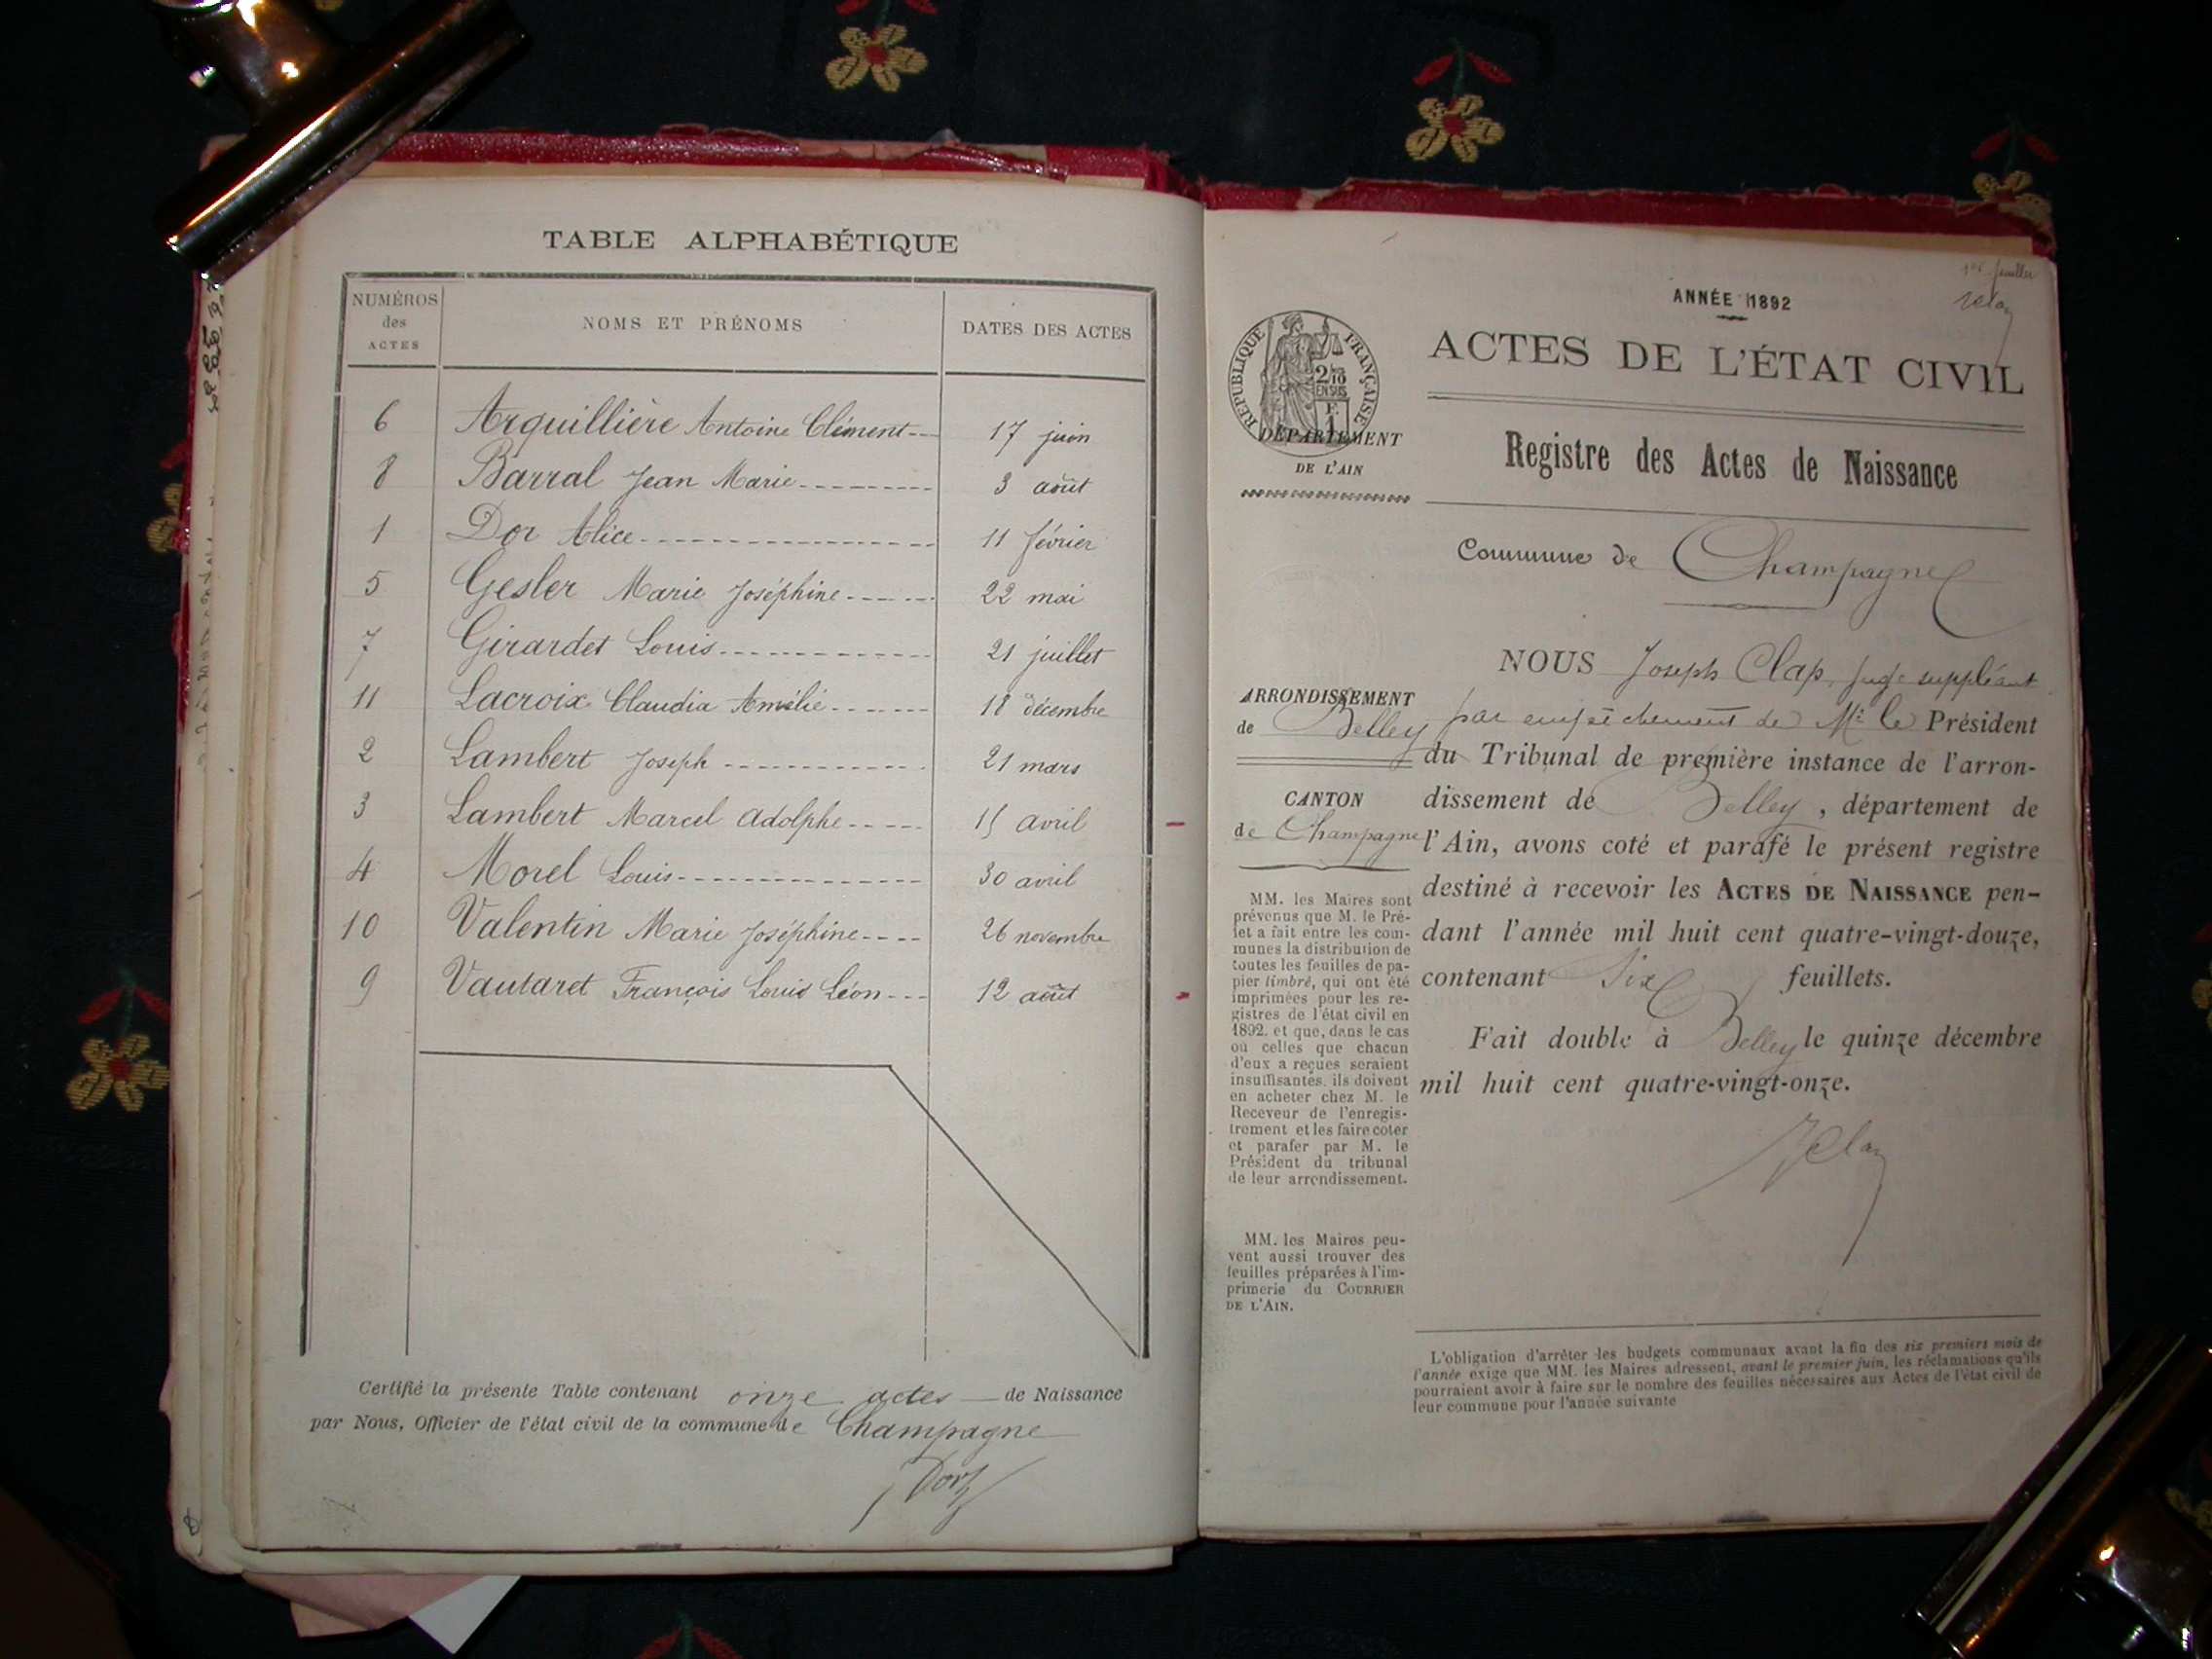 TABLE ALPHABÉTIQUE
NUMÉROS des ACTES
NOMS ET PRÉNOMS
DATES DES ACTES
6 Arquillière Antoine Clément 17 juin
8 Barral Jean Marie 3 août
1 Dor Alice 11 février
5 Gesler Marie Joséphine 22 mai
7 Girardet Louis 21 juillet
11 Lacroix Claudia Amélie 18 décembre
2 Lambert Joseph 21 mars
3 Lambert Marcel Adolphe 15 avril
4 Morel Louis 30 avril
10 Valentin Marie Joséphine 26 novembre
9 Vautaret François Louis Léon 12 août
Certifié la présente Table contenant onze actes de Naissance
par Nous, Officier de l'état civil de la commune de Champagne
1er feuillet
ANNÉE 1892
ACTES DE L'ÉTAT CIVIL
RÉPUBLIQUE FRANÇAISE
2/10
EN SUS
F.
1
DÉPARTEMENT
DE L'AIN
Registre des Actes de Naissance
Commune de Champagne
ARRONDISSEMENT
de Belley
CANTON
de Champagne
MM. les Maires sont
prévenus que M. le Pré-
fet a fait entre les com-
munes la distribution de
toutes les feuilles de pa-
pier timbré, qui ont été
imprimées pour les re-
gistres de l'état civil en
1892, et que, dans le cas
où celles que chacun
d'eux a reçues seraient
insuffisantes, ils doivent
en acheter chez M. le
Receveur de l'enregis-
trement et les faire coter
et parafer par M. le
Président du tribunal
de leur arrondissement.
MM. les Maires peu-
vent aussi trouver des
feuilles préparées à l'im-
primerie du COURRIER
DE L'AIN.
NOUS Joseph Clap, juge suppléant
par empêchement de Mr le Président
du Tribunal de première instance de l'arron-
dissement de Belley, département de
l'Ain, avons coté et parafé le présent registre
destiné à recevoir les ACTES DE NAISSANCE pen-
dant l'année mil huit cent quatre-vingt-douze,
contenant Six feuillets.
Fait double à Belley le quinze décembre
mil huit cent quatre-vingt-onze.
L'obligation d'arrêter les budgets communaux avant la fin des six premiers mois de
l'année exige que MM. les Maires adressent, avant le premier juin, les réclamations qu'ils
pourraient avoir à faire sur le nombre des feuilles nécessaires aux Actes de l'état civil de
leur commune pour l'année suivante